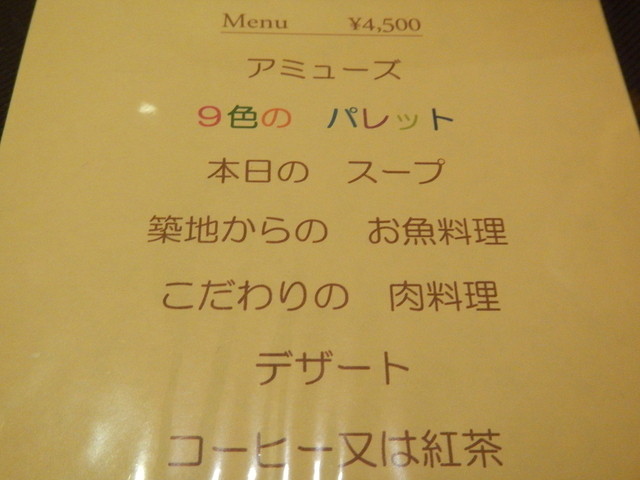 Menu ¥4,500
アミューズ
９色の　パレット
本日の　スープ
築地からの　お魚料理
こだわりの　肉料理
デザート
コーヒー又は紅茶